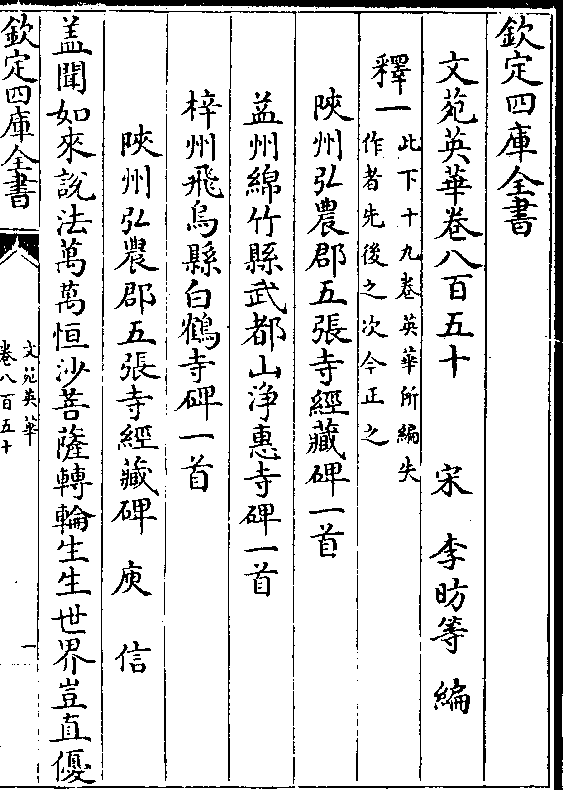 欽定四庫全書
文苑英華卷八百五十　宋　李昉等　編
釋一此下十九卷英華所編失
作者先後之次今正之
陜州弘農郡五張寺經藏碑一首
益州綿竹縣武都山浄惠寺碑一首
梓州飛烏縣白鶴寺碑一首
陜州弘農郡五張寺經藏碑　庾　信
盖聞如來說法萬萬恒沙菩薩轉輪生生世界豈直優
欽定四庫全書
文苑英華
卷八百五十
一